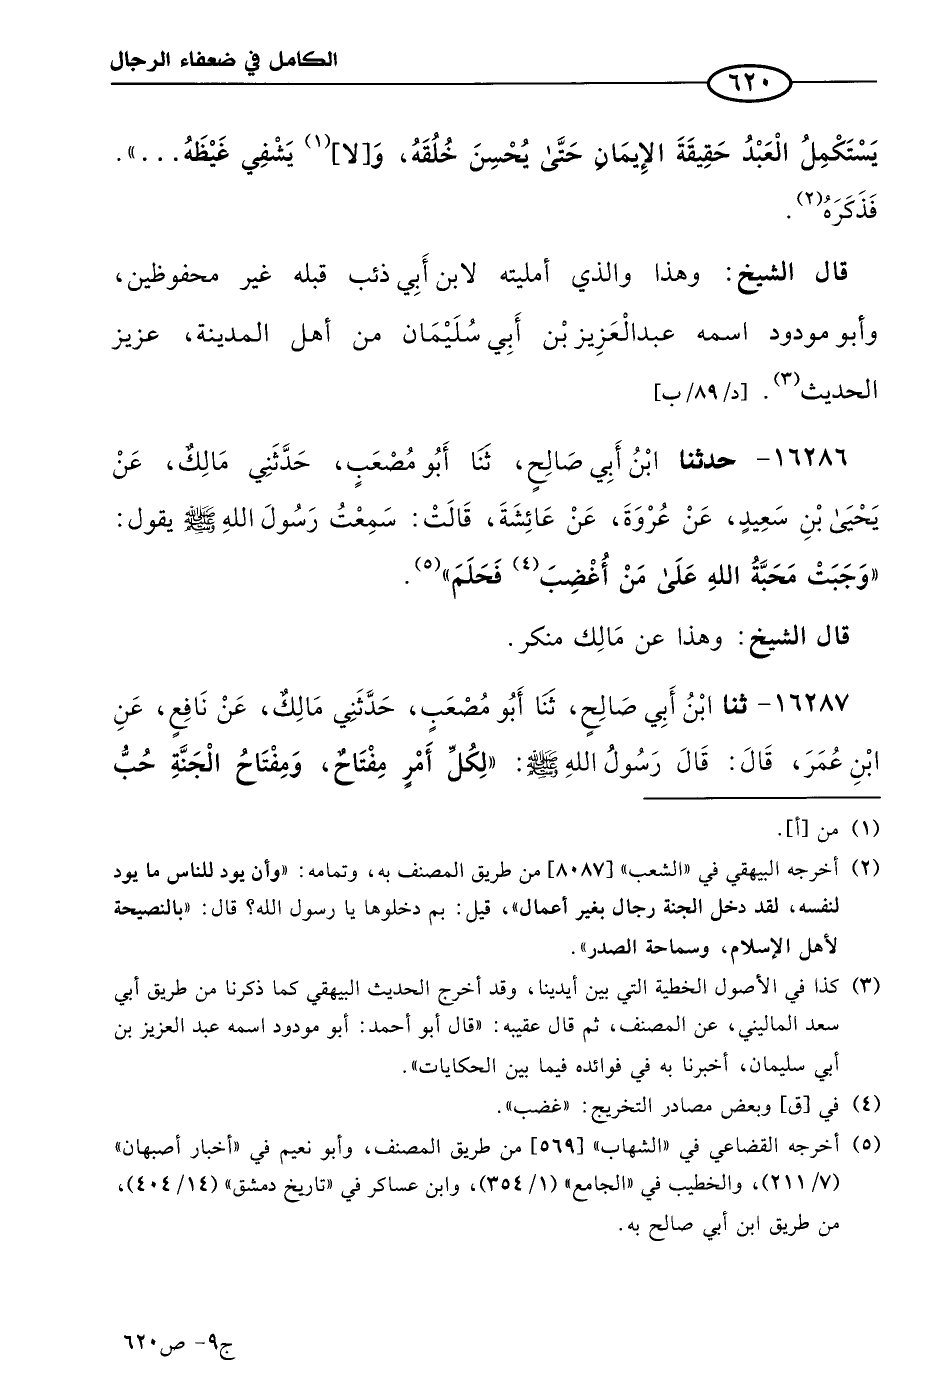 الكامل في ضعفاء الرجال
٦٢٠
يَسْتَكْمِلُ الْعَبْدُ حَقِيقَةَ الإِيمَانِ حَتَّىٰ يُحْسِنَ خُلُقَهُ، وَ[لا](١) يَشْفِي غَيْظَهُ...».
فَذَكَرَهُ(٢).
قال الشيخ: وهذا والذي أمليته لابن أَبِي ذئب قبله غير محفوظين،
وأبو مودود اسمه عبدالْعَزِيز بْن أَبِي سُلَيْمَان من أهل المدينة، عزيز
الحديث(٣). [د/٨٩/ب]
١٦٢٨٦- حدثنا ابْنُ أَبِي صَالِحٍ، ثَنَا أَبُو مُصْعَبٍ، حَدَّثَنِي مَالِكٌ، عَنْ
يَحْيَىٰ بْنِ سَعِيدٍ، عَنْ عُرْوَةَ، عَنْ عَائِشَةَ، قَالَتْ: سَمِعْتُ رَسُولَ اللهِ ﷺ يقول:
«وَجَبَتْ مَحَبَّةُ اللهِ عَلَىٰ مَنْ أُغْضِبَ(٤) فَحَلَمَ»(٥).
قال الشيخ: وهذا عن مَالِك منكر.
١٦٢٨٧- ثنا ابْنُ أَبِي صَالِحٍ، ثَنَا أَبُو مُصْعَبٍ، حَدَّثَنِي مَالِكٌ، عَنْ نَافِعٍ، عَنِ
ابْنِ عُمَرَ، قَالَ: قَالَ رَسُولُ اللهِ ﷺ: «لِكُلِّ أَمْرٍ مِفْتَاحٌ، وَمِفْتَاحُ الْجَنَّةِ حُبُّ
(١) من [أ].
(٢) أخرجه البيهقي في «الشعب» [٨٠٨٧] من طريق المصنف به، وتمامه: «وأن يود للناس ما يود
لنفسه، لقد دخل الجنة رجال بغير أعمال»، قيل: بم دخلوها يا رسول الله؟ قال: «بالنصيحة
لأهل الإسلام، وسماحة الصدر».
(٣) كذا في الأصول الخطية التي بين أيدينا، وقد أخرج الحديث البيهقي كما ذكرنا من طريق أبي
سعد الماليني، عن المصنف، ثم قال عقيبه: «قال أبو أحمد: أبو مودود اسمه عبد العزيز بن
أبي سليمان، أخبرنا به في فوائده فيما بين الحكايات».
(٤) في [ق] وبعض مصادر التخريج: «غضب».
(٥) أخرجه القضاعي في «الشهاب» [٥٦٩] من طريق المصنف، وأبو نعيم في «أخبار أصبهان»
(٧/ ٢١١)، والخطيب في «الجامع» (١/ ٣٥٤)، وابن عساكر في «تاريخ دمشق» (١٤/ ٤٠٤)،
من طريق ابن أبي صالح به.
ج٩- ص٦٢٠